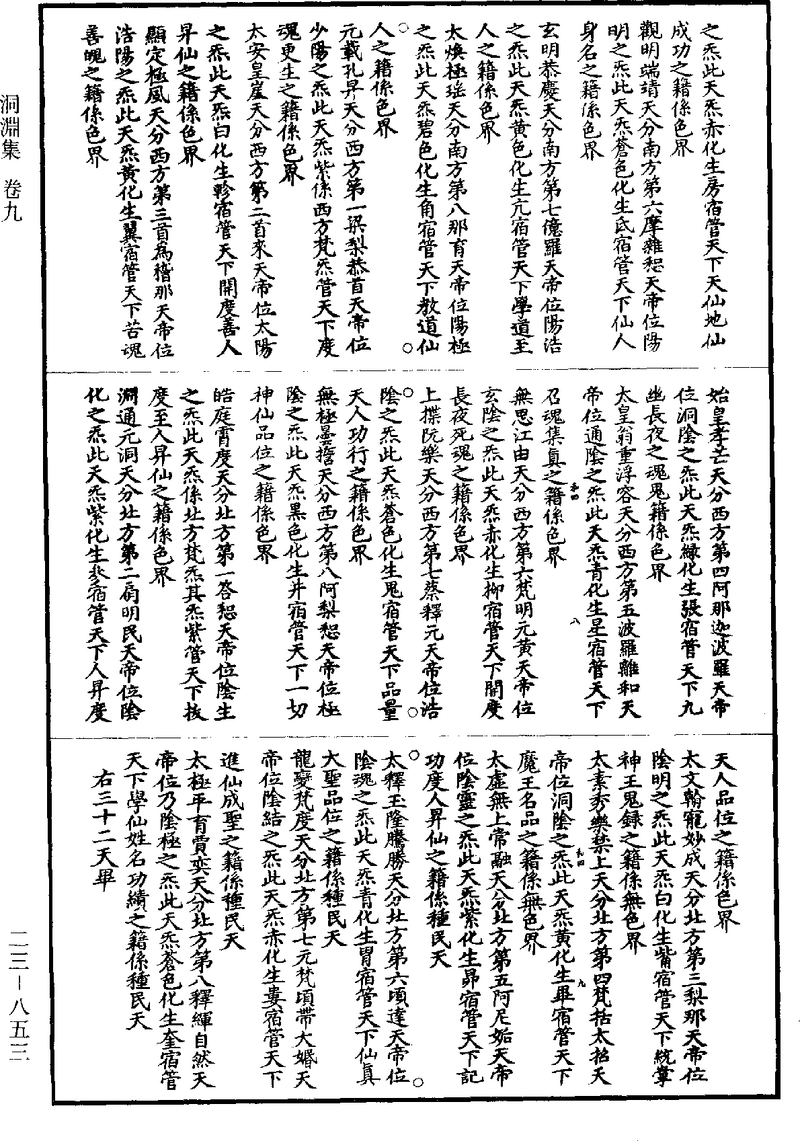 洞淵集　卷九
之炁此天炁赤化生房宿管天下天仙地仙
成功之籍係色界
觀明端靖天分南方第六摩雜恕天帝位陽
明之炁此天炁蒼色化生氐宿管天下仙人
身名之籍係色界
玄明恭慶天分南方第七億羅天帝位陽浩
之炁此天炁黄色化生亢宿管天下學道至
人之籍係色界
太煥極瑶天分南方第八那育天帝位陽極
之炁此天炁碧色化生角宿管天下教道仙
人之籍係色界
元載孔昇天分西方第一梁梨恭首天帝位
少陽之炁此天炁紫係西方梵炁管天下度
魂更生之籍係色界
太安皇崖天分西方第二首來天帝位太陽
之炁此天炁白化生軫宿管天下開度善人
昇仙之籍係色界
顯定極風天分西方第三首為稽那天帝位
浩陽之炁此天炁黄化生翼宿管天下苦魂
善魄之籍係色界
始皇孝芒天分西方第四阿那迦波羅天帝
位洞陰之炁此天炁緑化生張宿管天下九
幽長夜之魂鬼籍係色界
太皇翁重浮容天分西方第五波羅離和天
帝位通陰之炁此天炁青化生星宿管天下
召魂集真之籍係色界
無思江由天分西方第六梵明元黄天帝位
玄陰之炁此天炁赤化生柳宿管天下開度
長夜死魂之籍係色界
上揲阮樂天分西方第七蔡釋元天帝位浩
陰之炁此天炁蒼色化生鬼宿管天下品量
天人功行之籍係色界
無極曇誓天分西方第八阿梨恕天帝位極
陰之炁此天炁黑色化生井宿管天下一切
神仙品位之籍係色界
皓庭霄度天分北方第一答恕天帝位陰生
之炁此天炁係北方梵炁其炁紫管天下拔
度至人昇仙之籍係色界
淵通元洞天分北方第二扇明民天帝位陰
化之炁此天炁紫化生參宿管天下人昇度
天人品位之籍係色界
太文翰寵妙成天分北方第三梨那天帝位
陰明之炁此天炁白化生觜宿管天下統掌
神王鬼録之籍係無色界
太素秀樂禁上天分北方第四梵括太招天
帝位洞陰之炁此天炁黄化生畢宿管天下
魔王名品之籍係無色界
太虛無上常融天分北方第五阿尼姤天帝
位陰靈之炁此天炁紫化生昴宿管天下記
功度人昇仙之籍係種民天
太釋玉隆騰勝天分北方第六頃達天帝位
陰魂之炁此天炁青化生胃宿管天下仙真
大聖品位之籍係種民天
龍變梵度天分北方第七元梵頃帶大婚天
帝位陰結之炁此天炁赤化生婁宿管天下
進仙成聖之籍係種民天
太極平育賈奕天分北方第八釋緷自然天
帝位乃陰極之炁此天炁蒼色化生奎宿管
天下學仙姓名功績之籍係種民天
右三十二天畢
二三－八五三